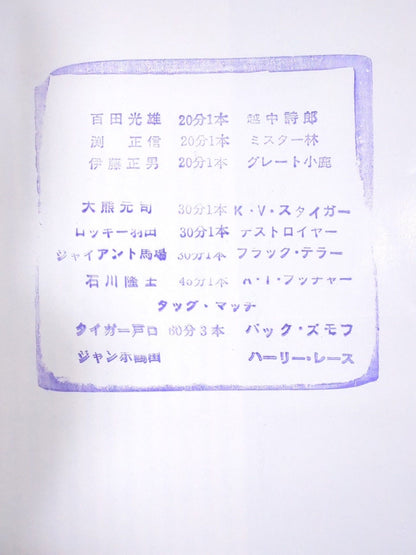 百田光雄 20分1本 越中詩郎
渕 正信 20分1本 ミスター林
伊藤正男 20分1本 グレート小鹿
大熊元司 30分1本 K・V・スタイガー
ロッキー羽田 30分1本 デストロイヤー
ジャイアント馬場 30分1本 ブラック・テラー
石川隆士 45分1本 A・T・ブッチャー
タッグ・マッチ
タイガー戸口 60分3本 バック・ズモフ
ジャンボ鶴田 ハーリー・レース